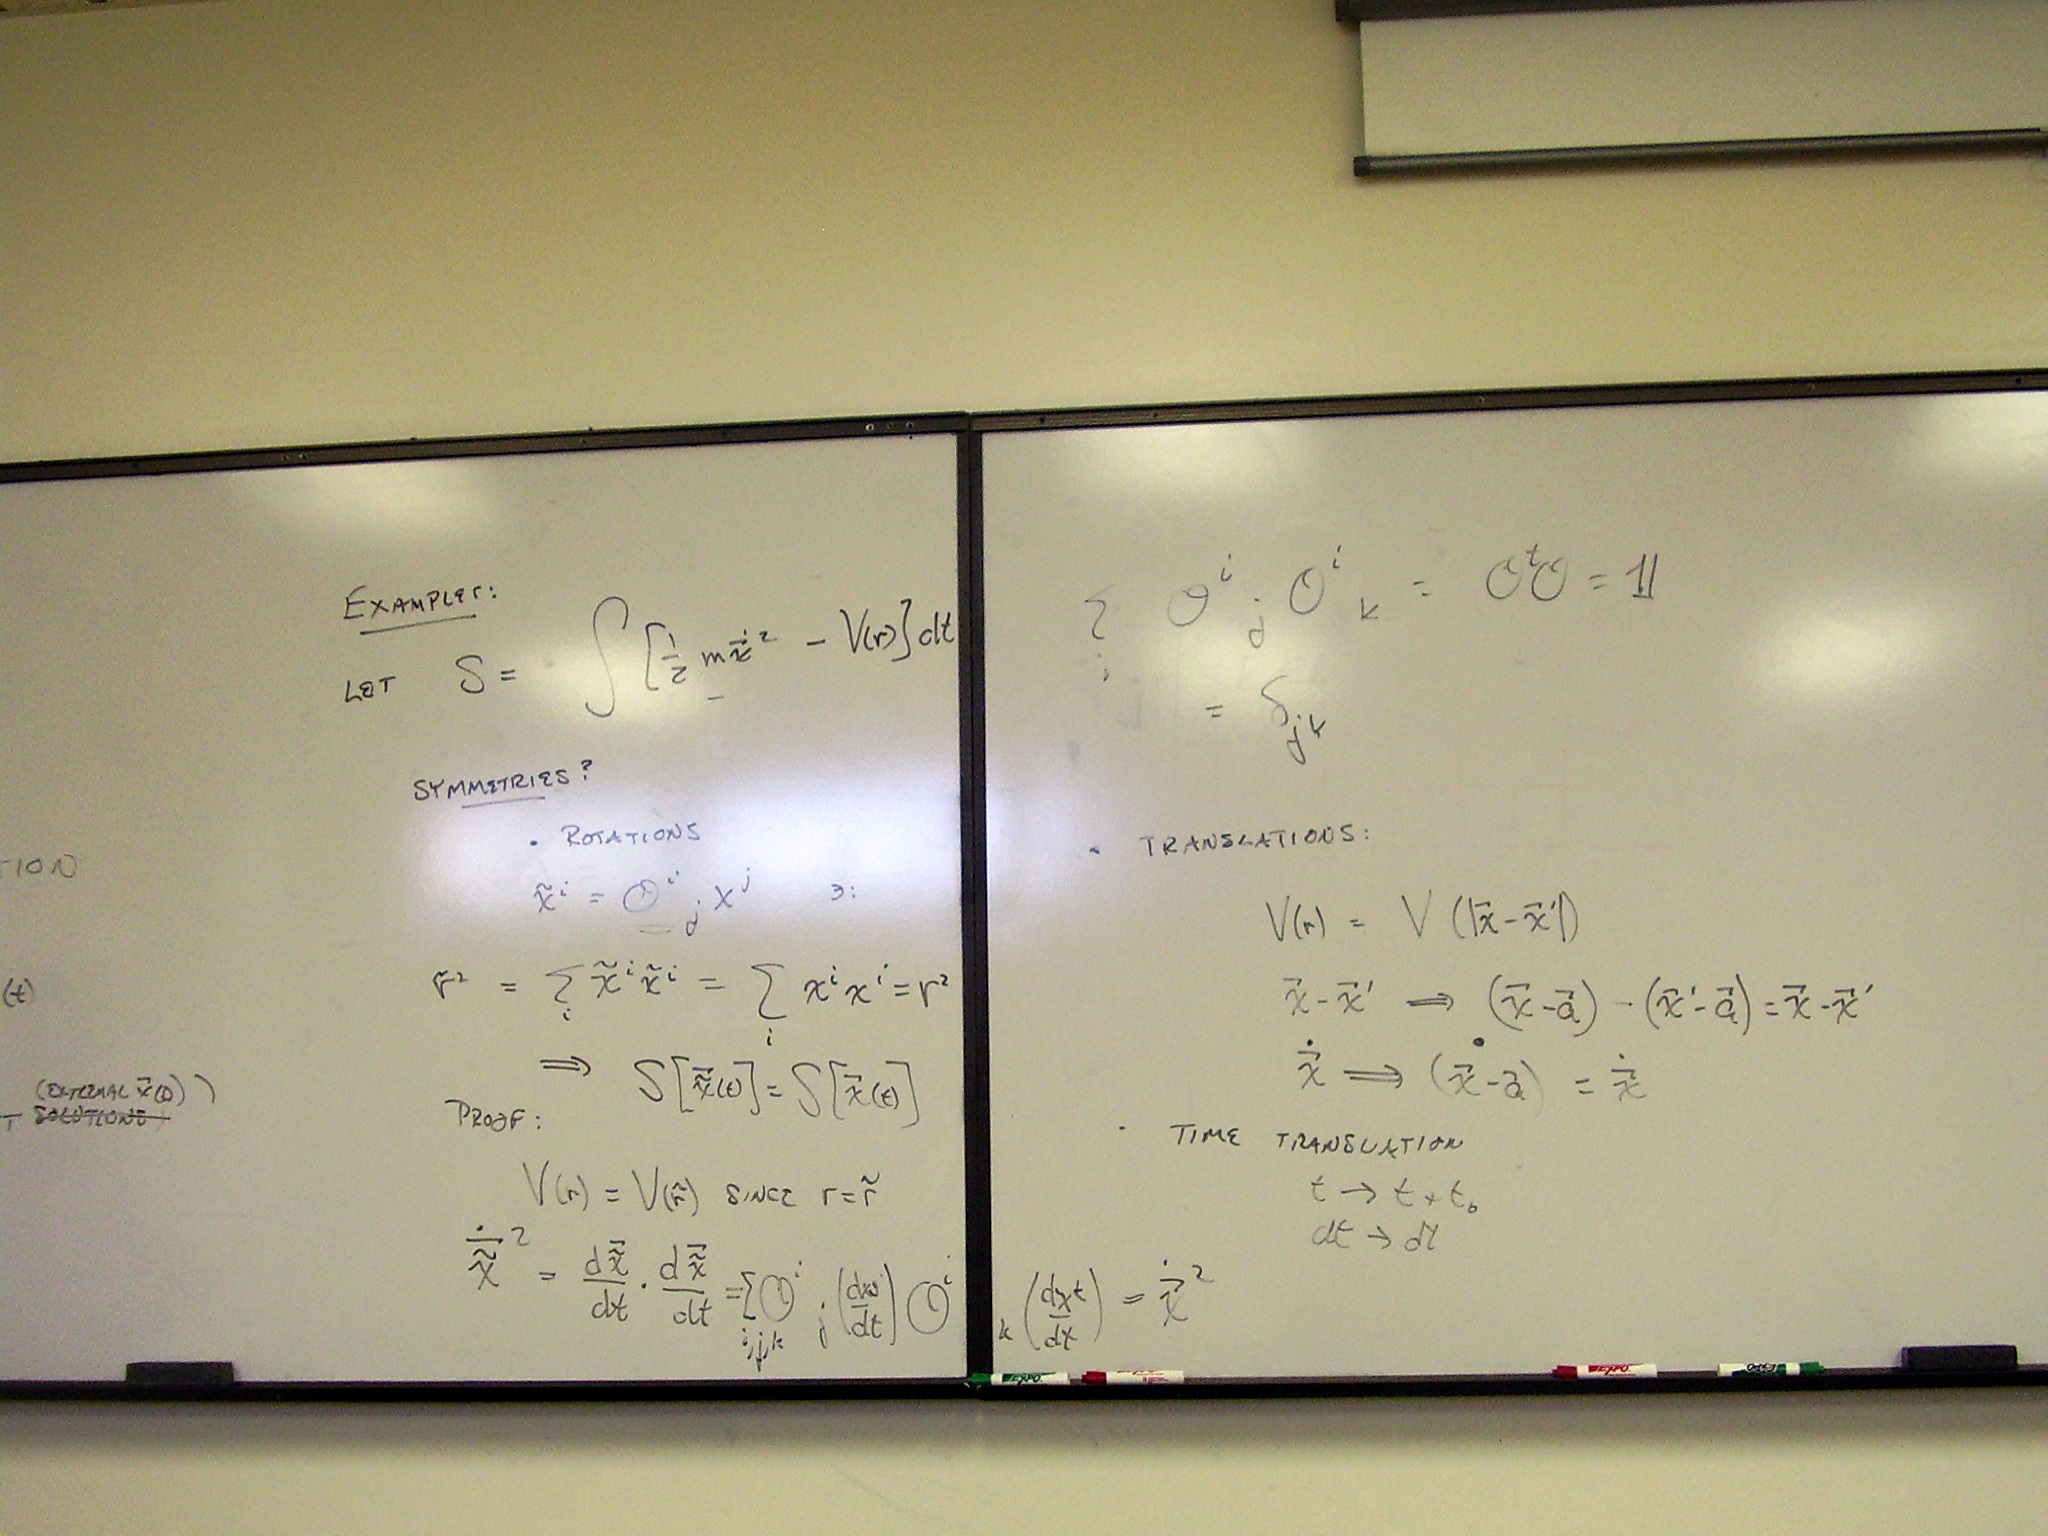 TION
(t)
(EXTERNAL x⃗(t)) )
SOLUTIONS )
EXAMPLES:
LET S = ∫ [½ m ẋ⃗² − V(r)] dt
SYMMETRIES?
• ROTATIONS
x̃ⁱ = Oⁱⱼ xʲ ∋:
r̃² = Σᵢ x̃ⁱ x̃ⁱ = Σᵢ xⁱ xⁱ = r²
⟹ S[x̃⃗(t)] = S[x⃗(t)]
PROOF:
V(r) = V(r̃) SINCE r = r̃
x̃̇⃗² = dx̃⃗/dt · dx̃⃗/dt = Σ_{i,j,k} Oⁱⱼ (dxʲ/dt) Oⁱₖ (dxᵗ/dx) = ẋ⃗²
Σᵢ Oⁱⱼ Oⁱₖ = OᵗO = 𝟙
= δⱼₖ
• TRANSLATIONS:
V(r) = V(|x⃗ − x⃗'|)
x⃗ − x⃗' ⟹ (x⃗ − a⃗) − (x⃗' − a⃗) = x⃗ − x⃗'
ẋ⃗ ⟹ (x⃗ − a⃗)˙ = ẋ⃗
• TIME TRANSLATION
t → t + t₀
dt → dt
EXPO
EXPO
EXPO